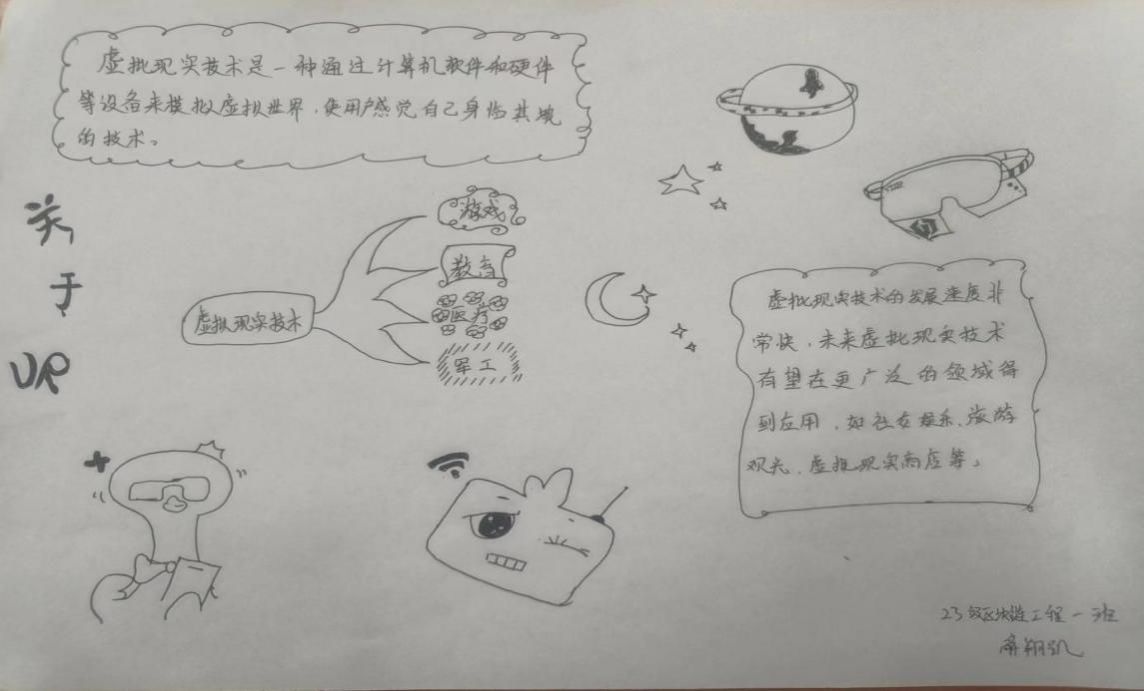 虚拟现实技术是一种通过计算机软件和硬件
等设备来模拟虚拟世界，使用户感觉自己身临其境
的技术。
关
于
VR
虚拟现实技术
游戏
教育
医疗
军工
虚拟现实技术的发展速度非
常快，未来虚拟现实技术
有望在更广泛的领域得
到应用，如社交娱乐、旅游
观光、虚拟现实商店等。
23级区块链工程一班
翔凯